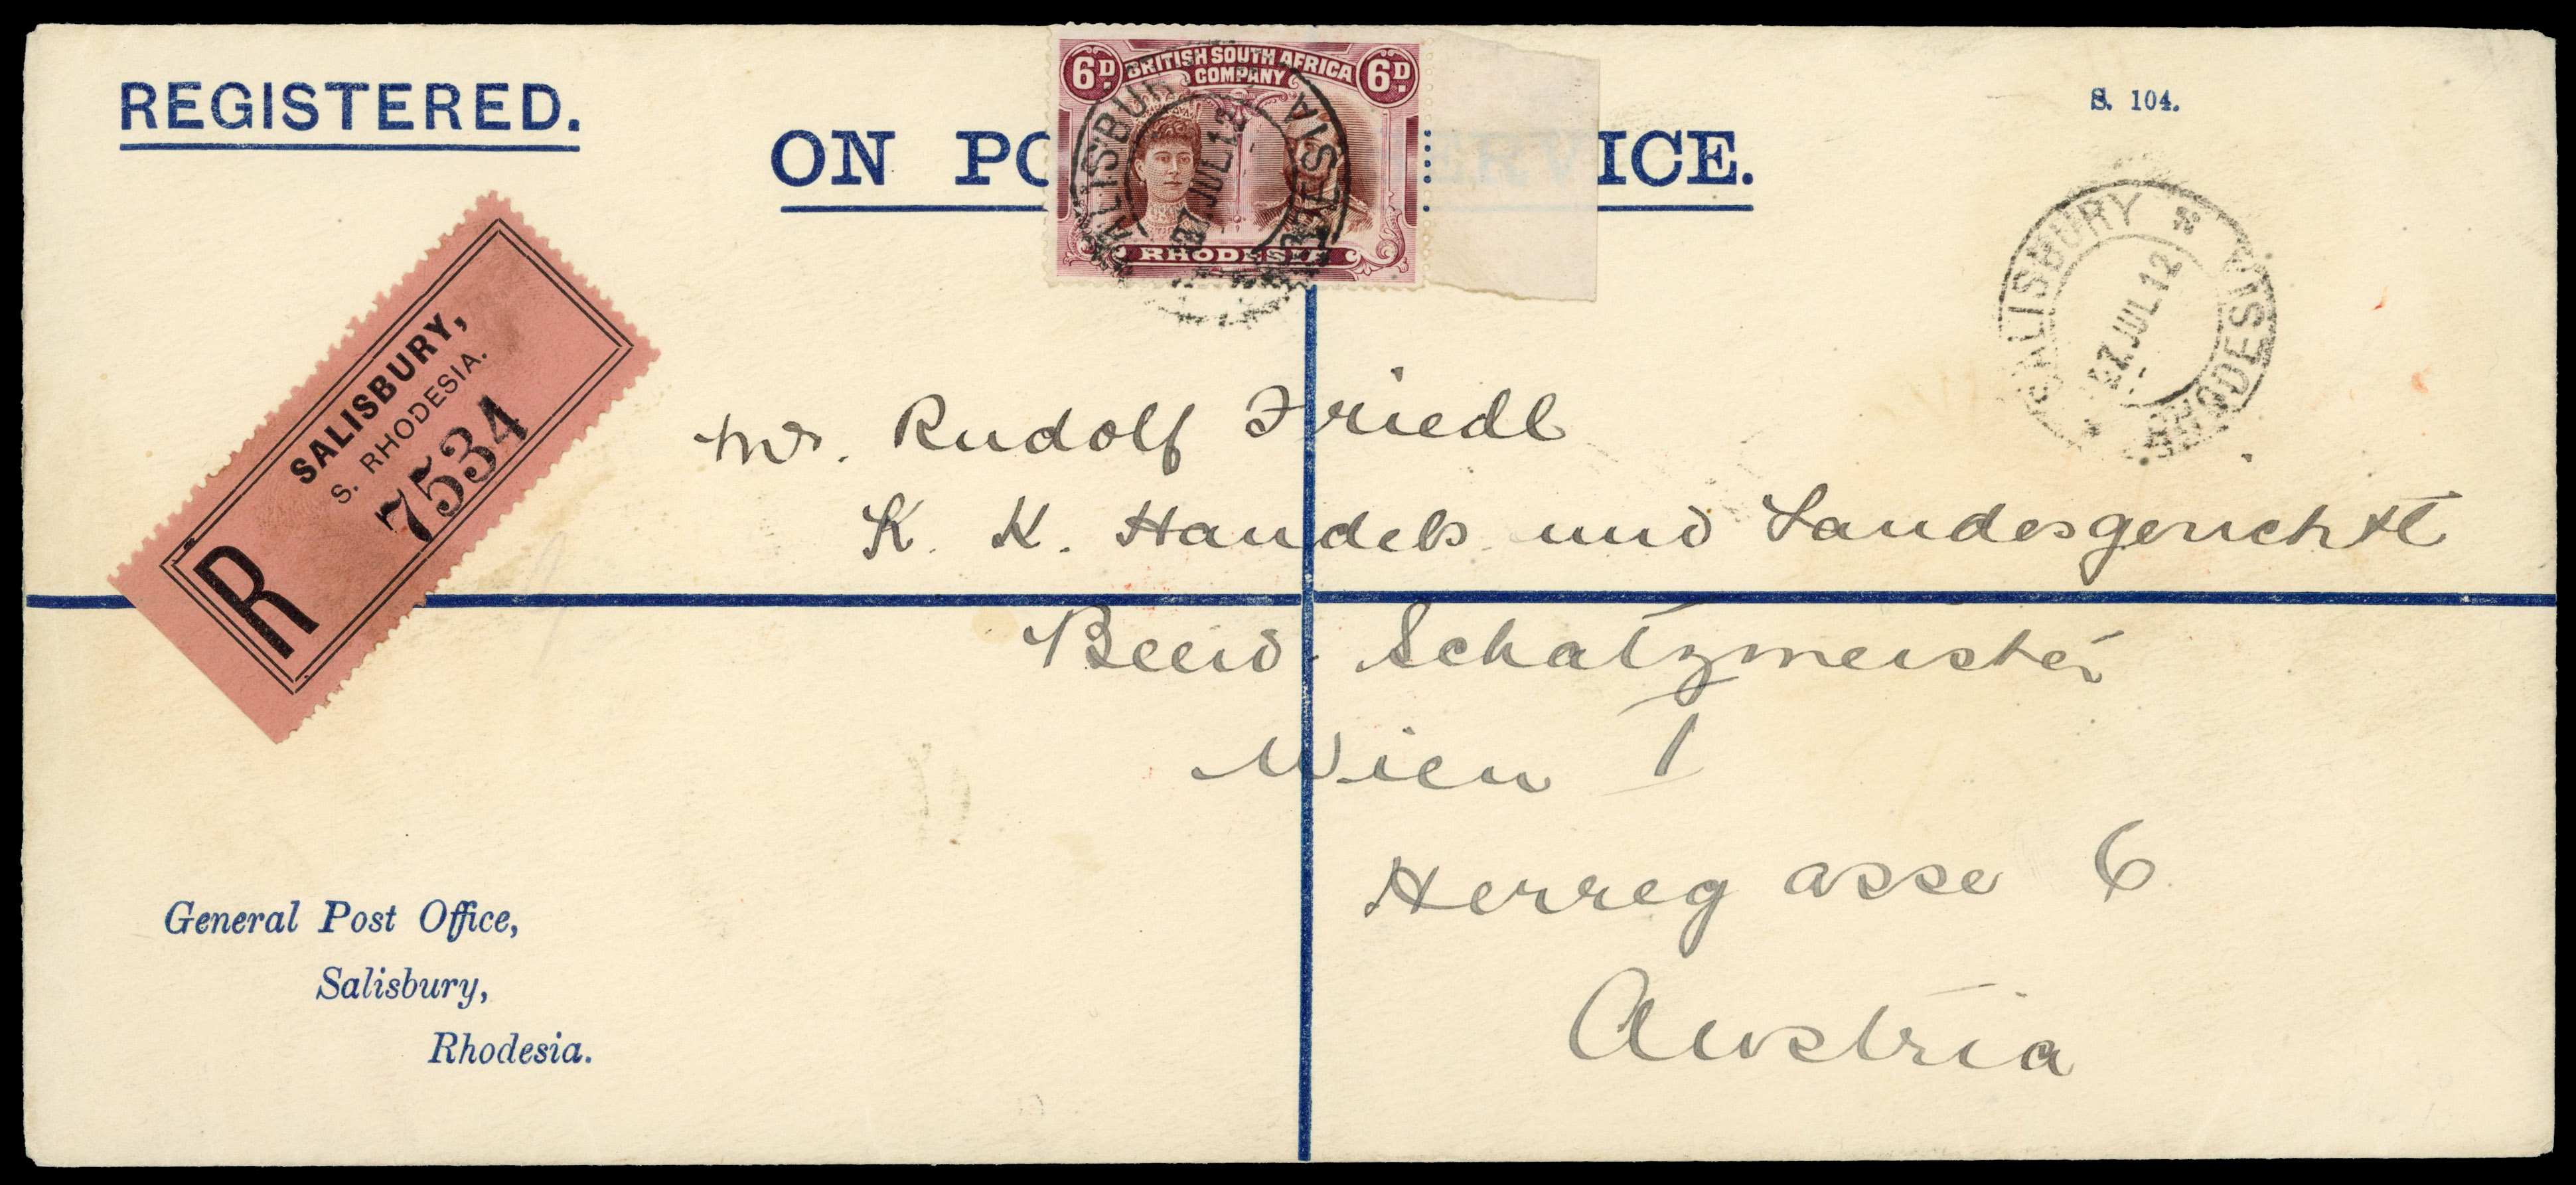 REGISTERED.
S. 104.
6D. BRITISH SOUTH AFRICA 6D.
COMPANY
RHODESIA
ON PO ERVICE.
SALISBURY
RHODESIA
JUL 12
SALISBURY
RHODESIA
27 JUL 12
SALISBURY,
S. RHODESIA.
7534
R
Mr. Rudolf Friedl
K. K. Handels und Landesgericht
Beeid. Schatzmeister
Wien 1
Herreg asse 6
Austria
General Post Office,
Salisbury,
Rhodesia.